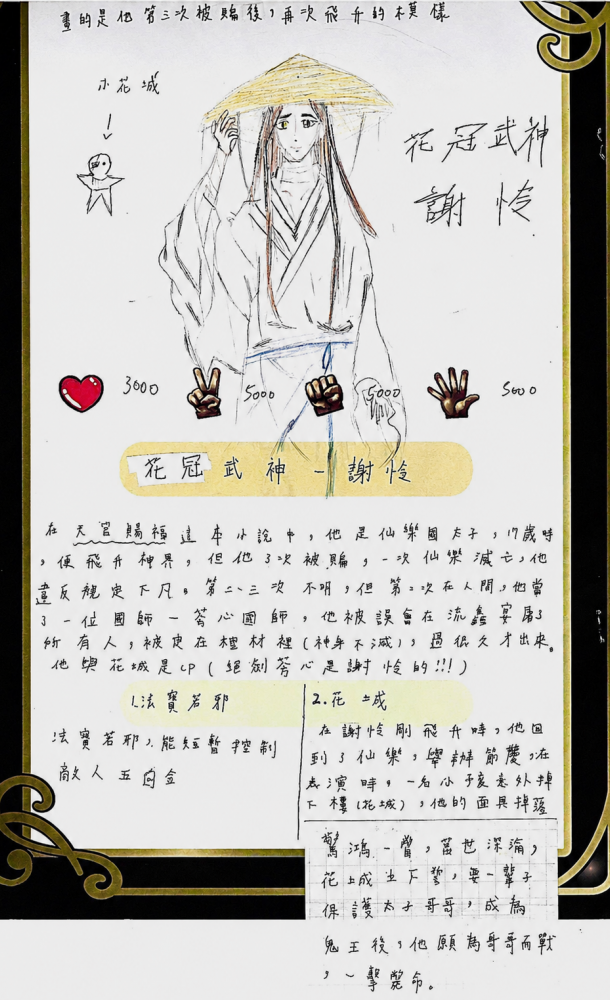 畫的是他第三次被貶後，再次飛升的模樣
小花城
花冠武神
謝怜
3000
5000
5000
5000
花冠武神-謝怜
在天官賜福這本小說中，他是仙樂國太子，17歲時
，便飛升神界，但他3次被貶，一次仙樂滅亡，他
違反規定下凡。第二、三次不明，但第2次在人間，他當
了一位國師-芳心國師，他被誤會在流鑫宴屠了
所有人，被定在棺材裡(神身不滅)，過很久才出來。
他與花城是CP(絕劍芳心是謝怜的!!!)
1.法寶若邪
法寶若邪，能短暫控制
敵人五回合
2.花城
在謝怜剛飛升時，他回
到了仙樂，舉辦節慶，在
表演時，一名小孩意外掉
下樓(花城)，他的面具掉落
驚鴻一瞥，萬世深淪，
花城立下誓，要一輩子
保護太子哥哥，成為
鬼王後，他願為哥哥而戰
，一擊斃命。